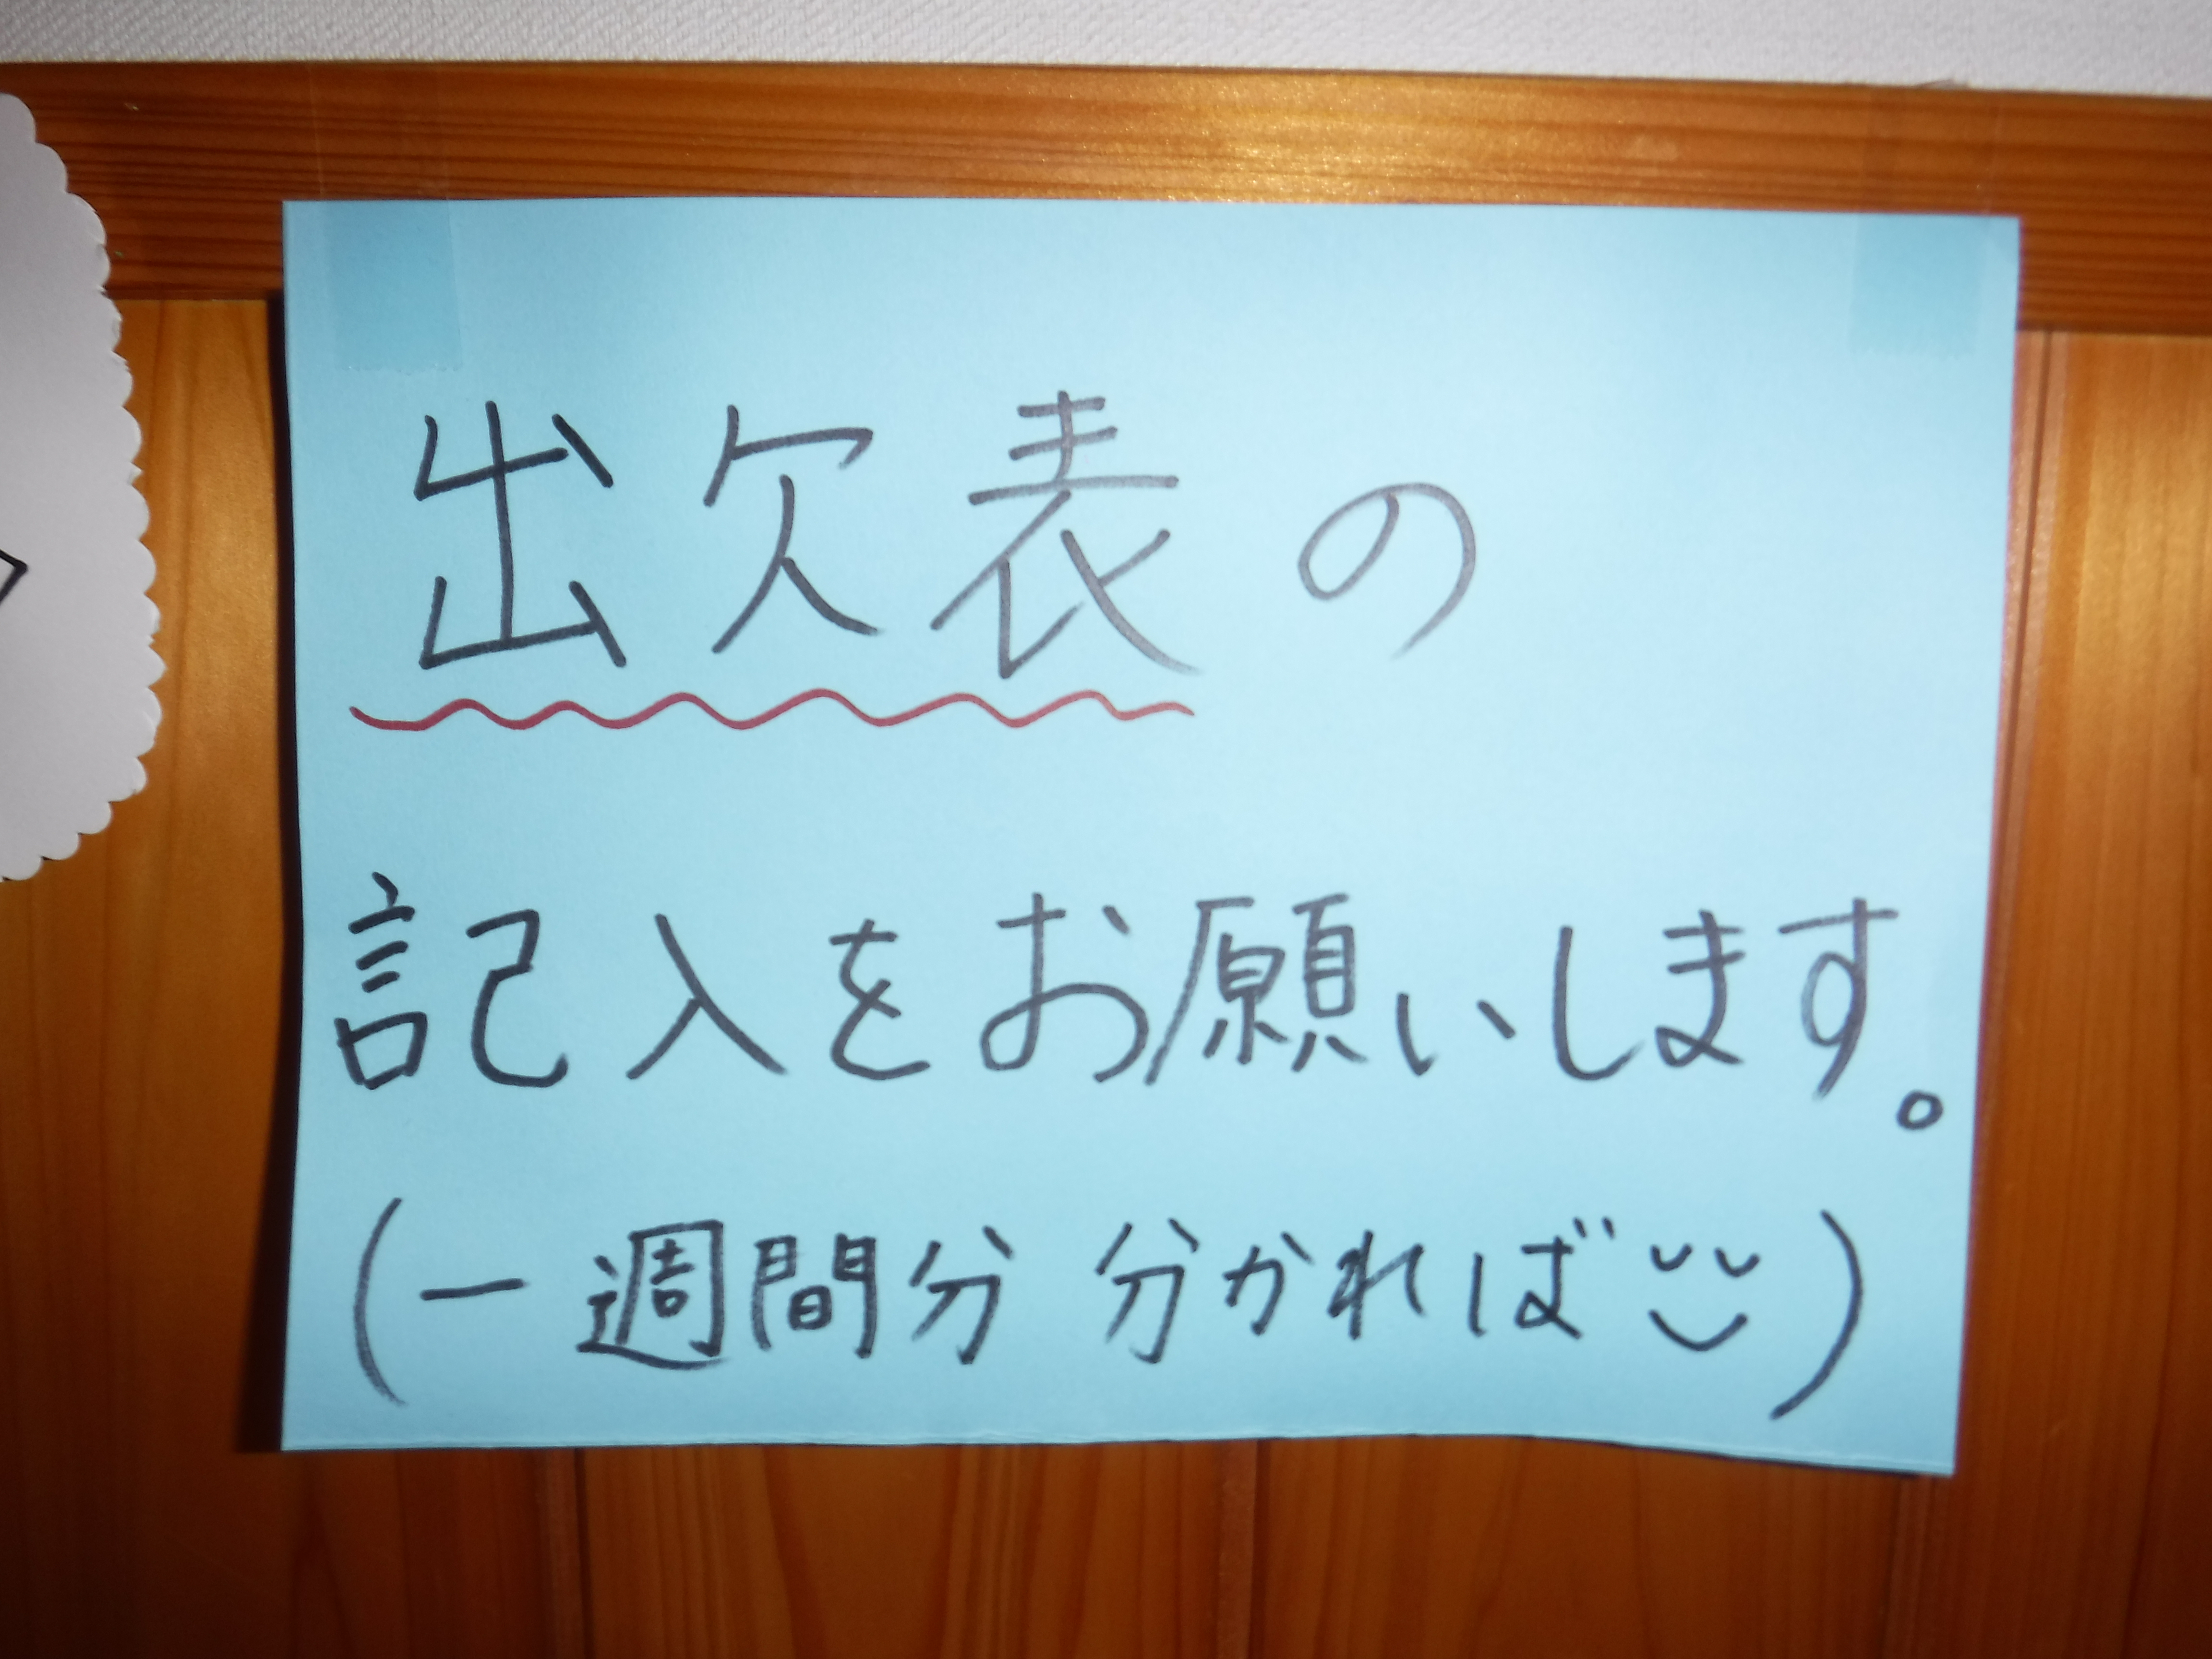 出欠表の
記入をお願いします。
(一週間分 分かれば)